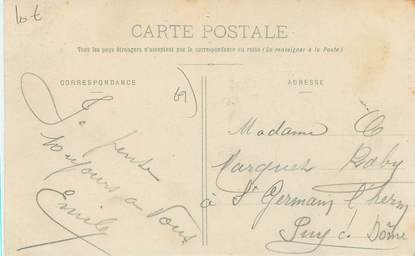 lot
CARTE POSTALE
Tous les pays étrangers n'acceptent pas la correspondance au recto (Se renseigner à la Poste)
CORRESPONDANCE
ADRESSE
Je pense
toujours a vous
Emile
Madame
à St Germain l'herm
Puy d. Dôme